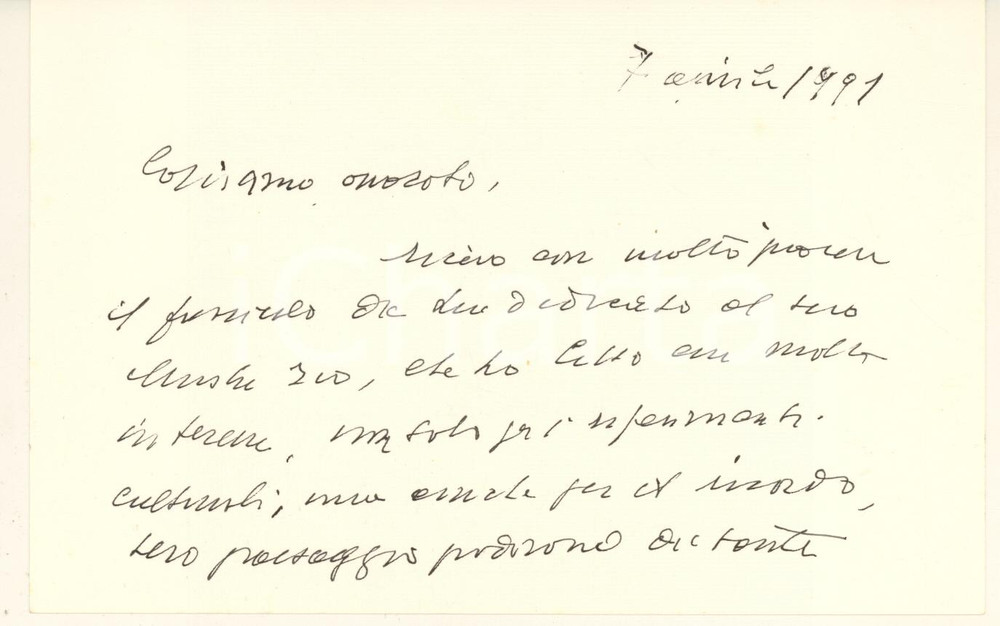 7 aprile 1991
onorato,
ricevo con molto piacere
il fascicolo da Lei dedicato al suo
illustre zio, che ho letto con molto
interesse, non solo per i riferimenti
culturali, ma anche per il ricordo,
paesaggio di tante
iCharta